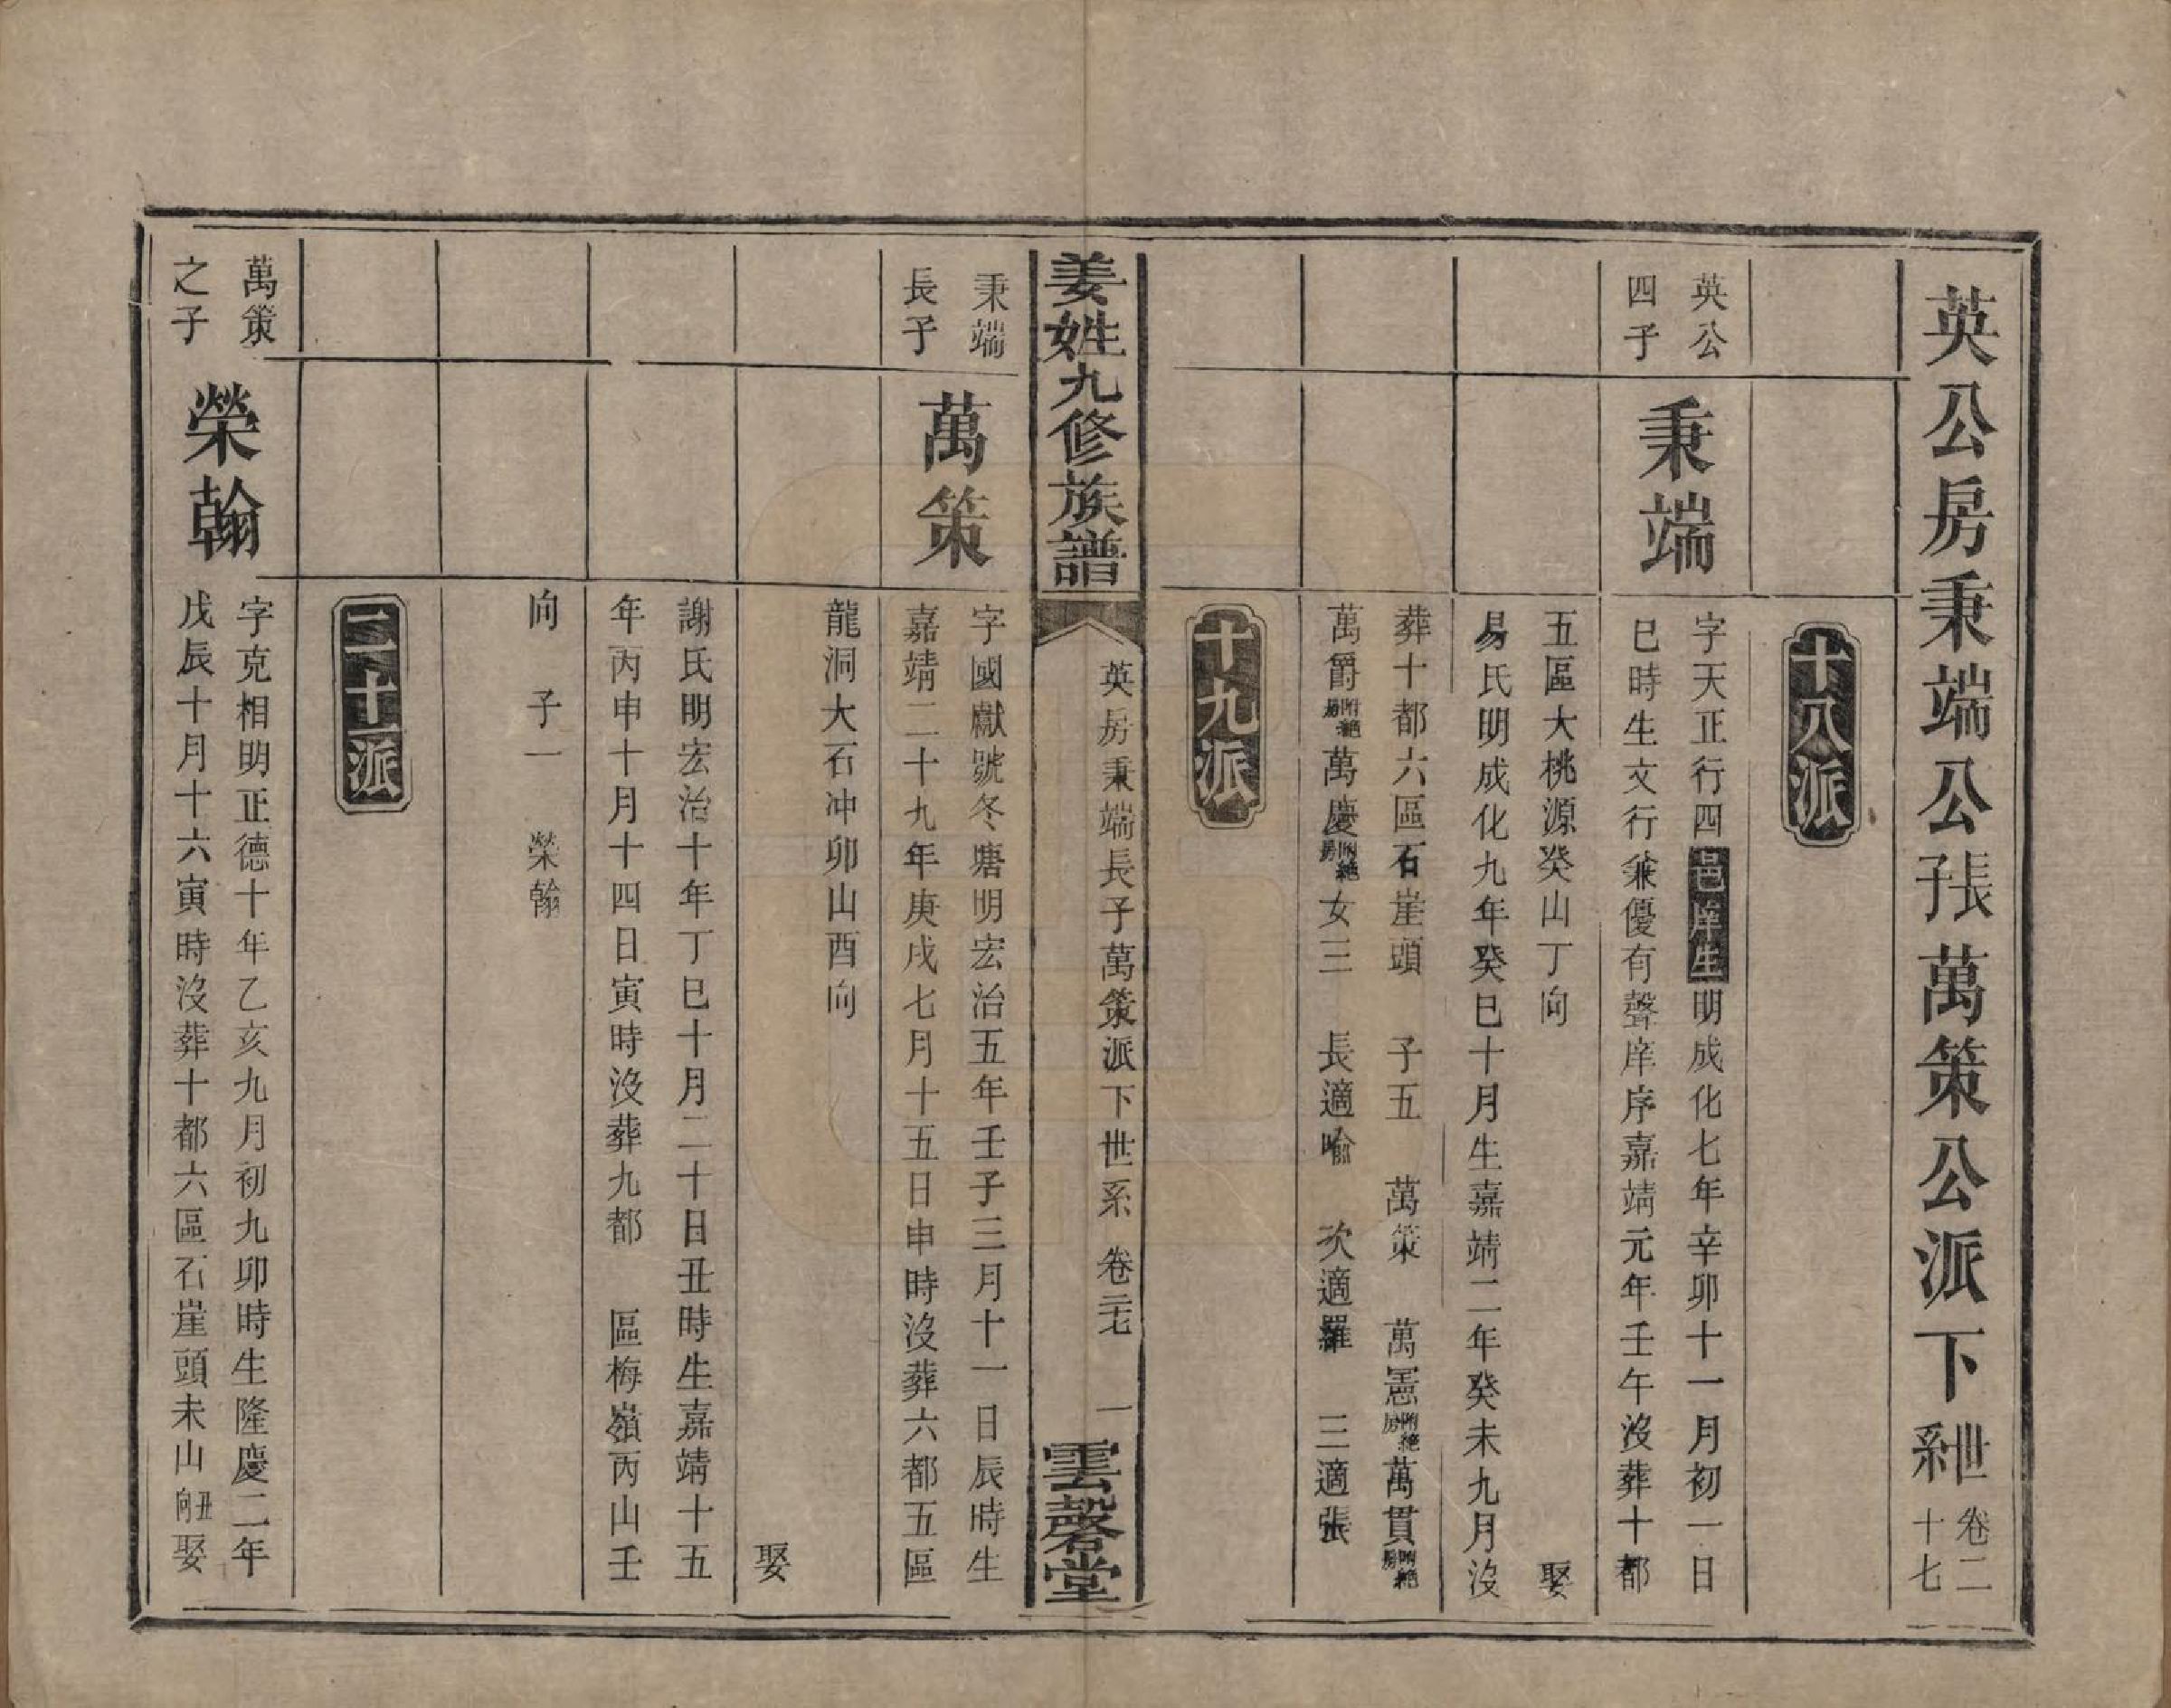 英公房秉端公長子萬策公派下世系卷二十七
十八派
英公四子
秉端
字天正行四邑庠生明成化七年辛卯十一月初一日
巳時生文行兼優有聲庠序嘉靖元年壬午沒葬十都
五區大桃源癸山丁向 娶
易氏明成化九年癸巳十月生嘉靖二年癸未九月沒
葬十都六區石崖頭 子五 萬策 萬憲附絕房萬貫附絕房
萬爵附絕房萬慶附絕房女三 長適喻 次適羅 三適張
十九派
姜姓九修族譜
英房秉端長子萬策派下世系 卷二十七 一
雲磬堂
秉端長子
萬策
字國獻號冬塘明宏治五年壬子三月十一日辰時生
嘉靖二十九年庚戌七月十五日申時沒葬六都五區
龍洞大石冲卯山酉向 娶
謝氏明宏治十年丁巳十月二十日丑時生嘉靖十五
年丙申十月十四日寅時沒葬九都 區梅嶺丙山壬
向 子一 榮翰
二十派
萬策之子
榮翰
字克相明正德十年乙亥九月初九卯時生隆慶二年
戊辰十月十六寅時沒葬十都六區石崖頭未山丑向娶